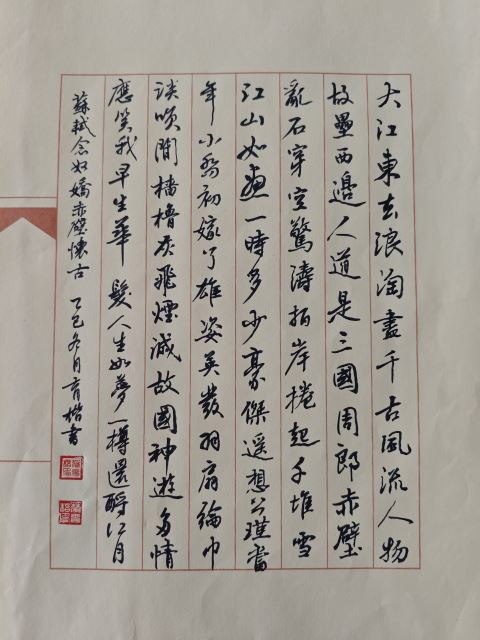 大江東去浪淘盡千古風流人物
故壘西邊人道是三國周郎赤壁
亂石穿空驚濤拍岸捲起千堆雪
江山如畫一時多少豪傑遥想公瑾當
年小喬初嫁了雄姿英發羽扇綸巾
談笑間檣櫓灰飛煙滅故國神遊多情
應笑我早生華髮人生如夢一樽還酹江月
蘇軾念奴嬌赤壁懷古 乙巳冬月育楷書